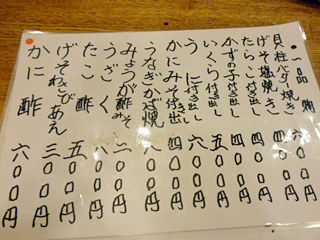 ・一品物
貝柱バター焼き 六〇〇円
げそ塩焼き 四〇〇円
たらこ付き出し 四〇〇円
かずの子付き出し 四〇〇円
いくら付き出し 五〇〇円
うに付き出し 六〇〇円
かにみそ付き出し 四〇〇円
うなぎかば焼 八〇〇円
みょうが酢みそ 二〇〇円
うざく 八〇〇円
たこ酢 五〇〇円
げそわさびあえ 三〇〇円
かに酢 六〇〇円